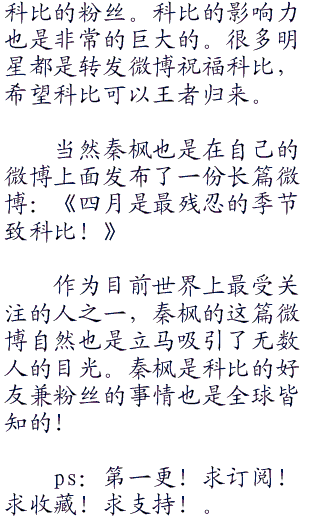 科比的粉丝。科比的影响力
也是非常的巨大的。很多明
星都是转发微博祝福科比，
希望科比可以王者归来。
当然秦枫也是在自己的
微博上面发布了一份长篇微
博：《四月是最残忍的季节
致科比！》
作为目前世界上最受关
注的人之一，秦枫的这篇微
博自然也是立马吸引了无数
人的目光。秦枫是科比的好
友兼粉丝的事情也是全球皆
知的！
ps：第一更！求订阅！
求收藏！求支持！。